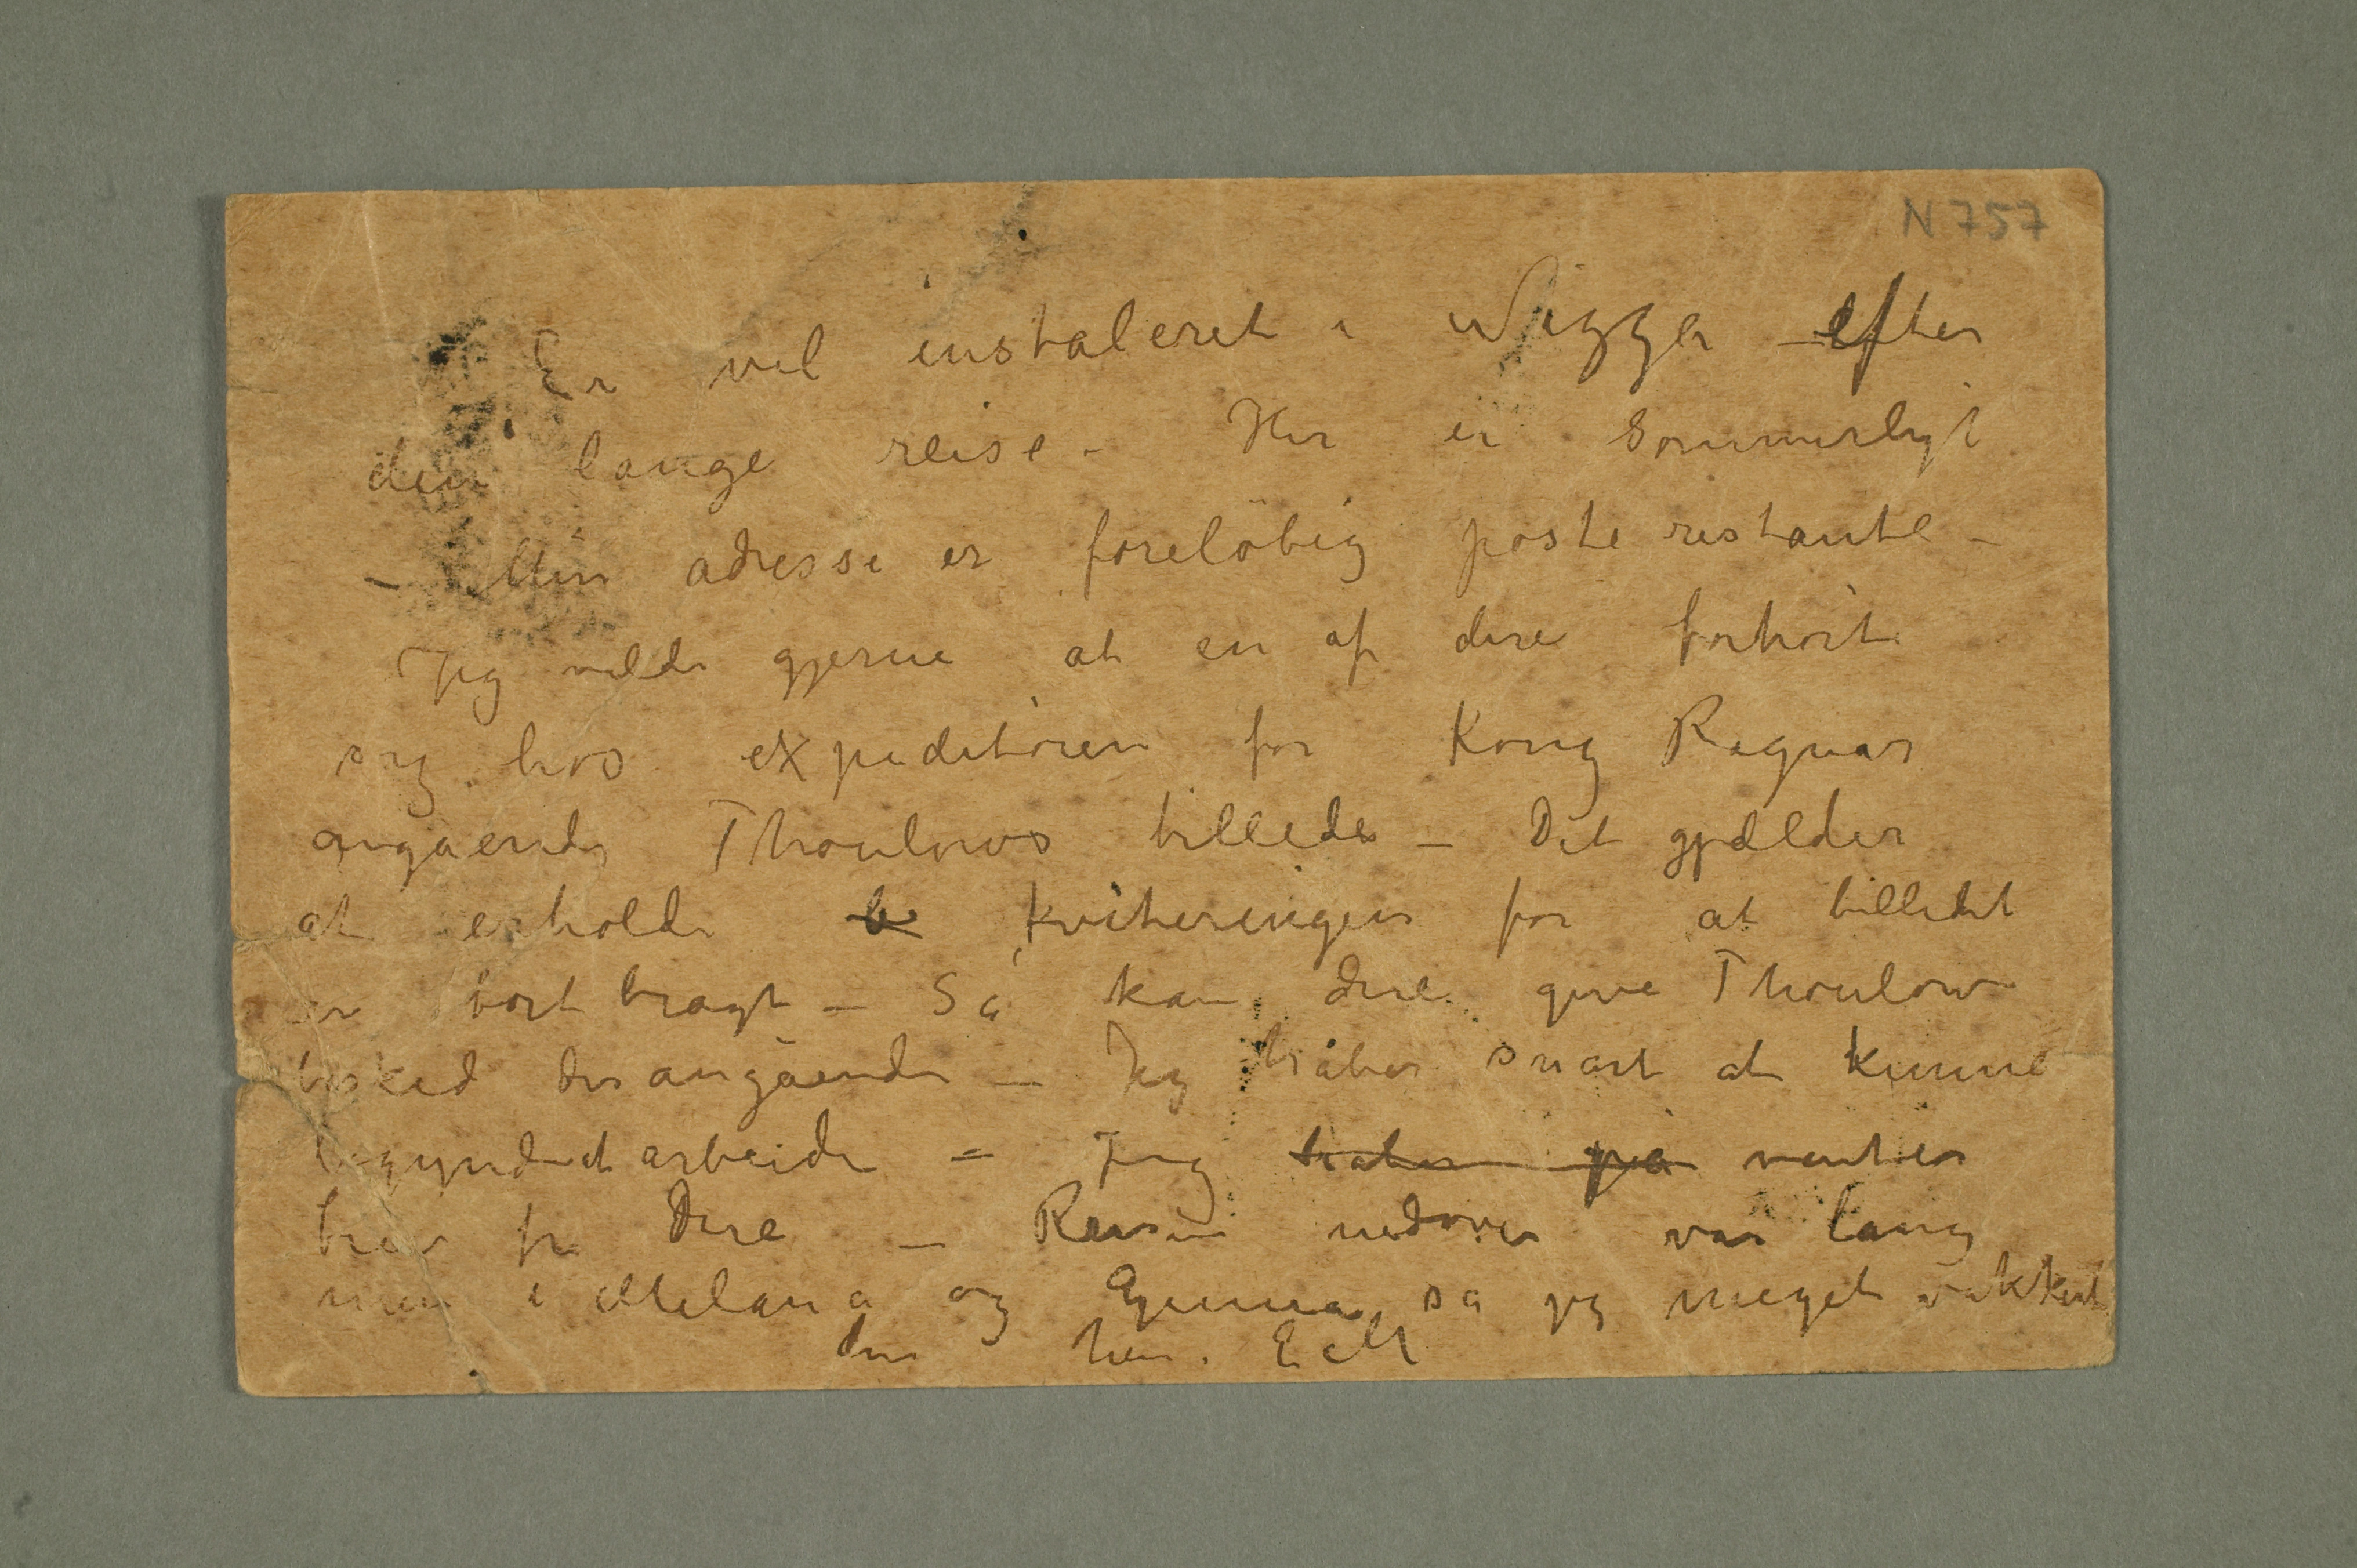 N 757
Er vel instaleret i Nizza efter
den lange reise – Her er sommerligt
– Min adresse er foreløbig poste restante –
Jeg vilde gjerne at en af dere forhørte
sig hos expeditøren for Kong Ragnar
angående Thoulows billede – Det gjælder
at erholde b kviteringen for at billedet
er bort bragt – Så kan dere give Thoulow
besked derangående – Jeg håber snart at kunne
begynde at arbeide – Jeg haber på venter
brev fra Dere – Reisen nedover var lang
men i Milano og Genua så jeg meget vakkert
din hen. E M